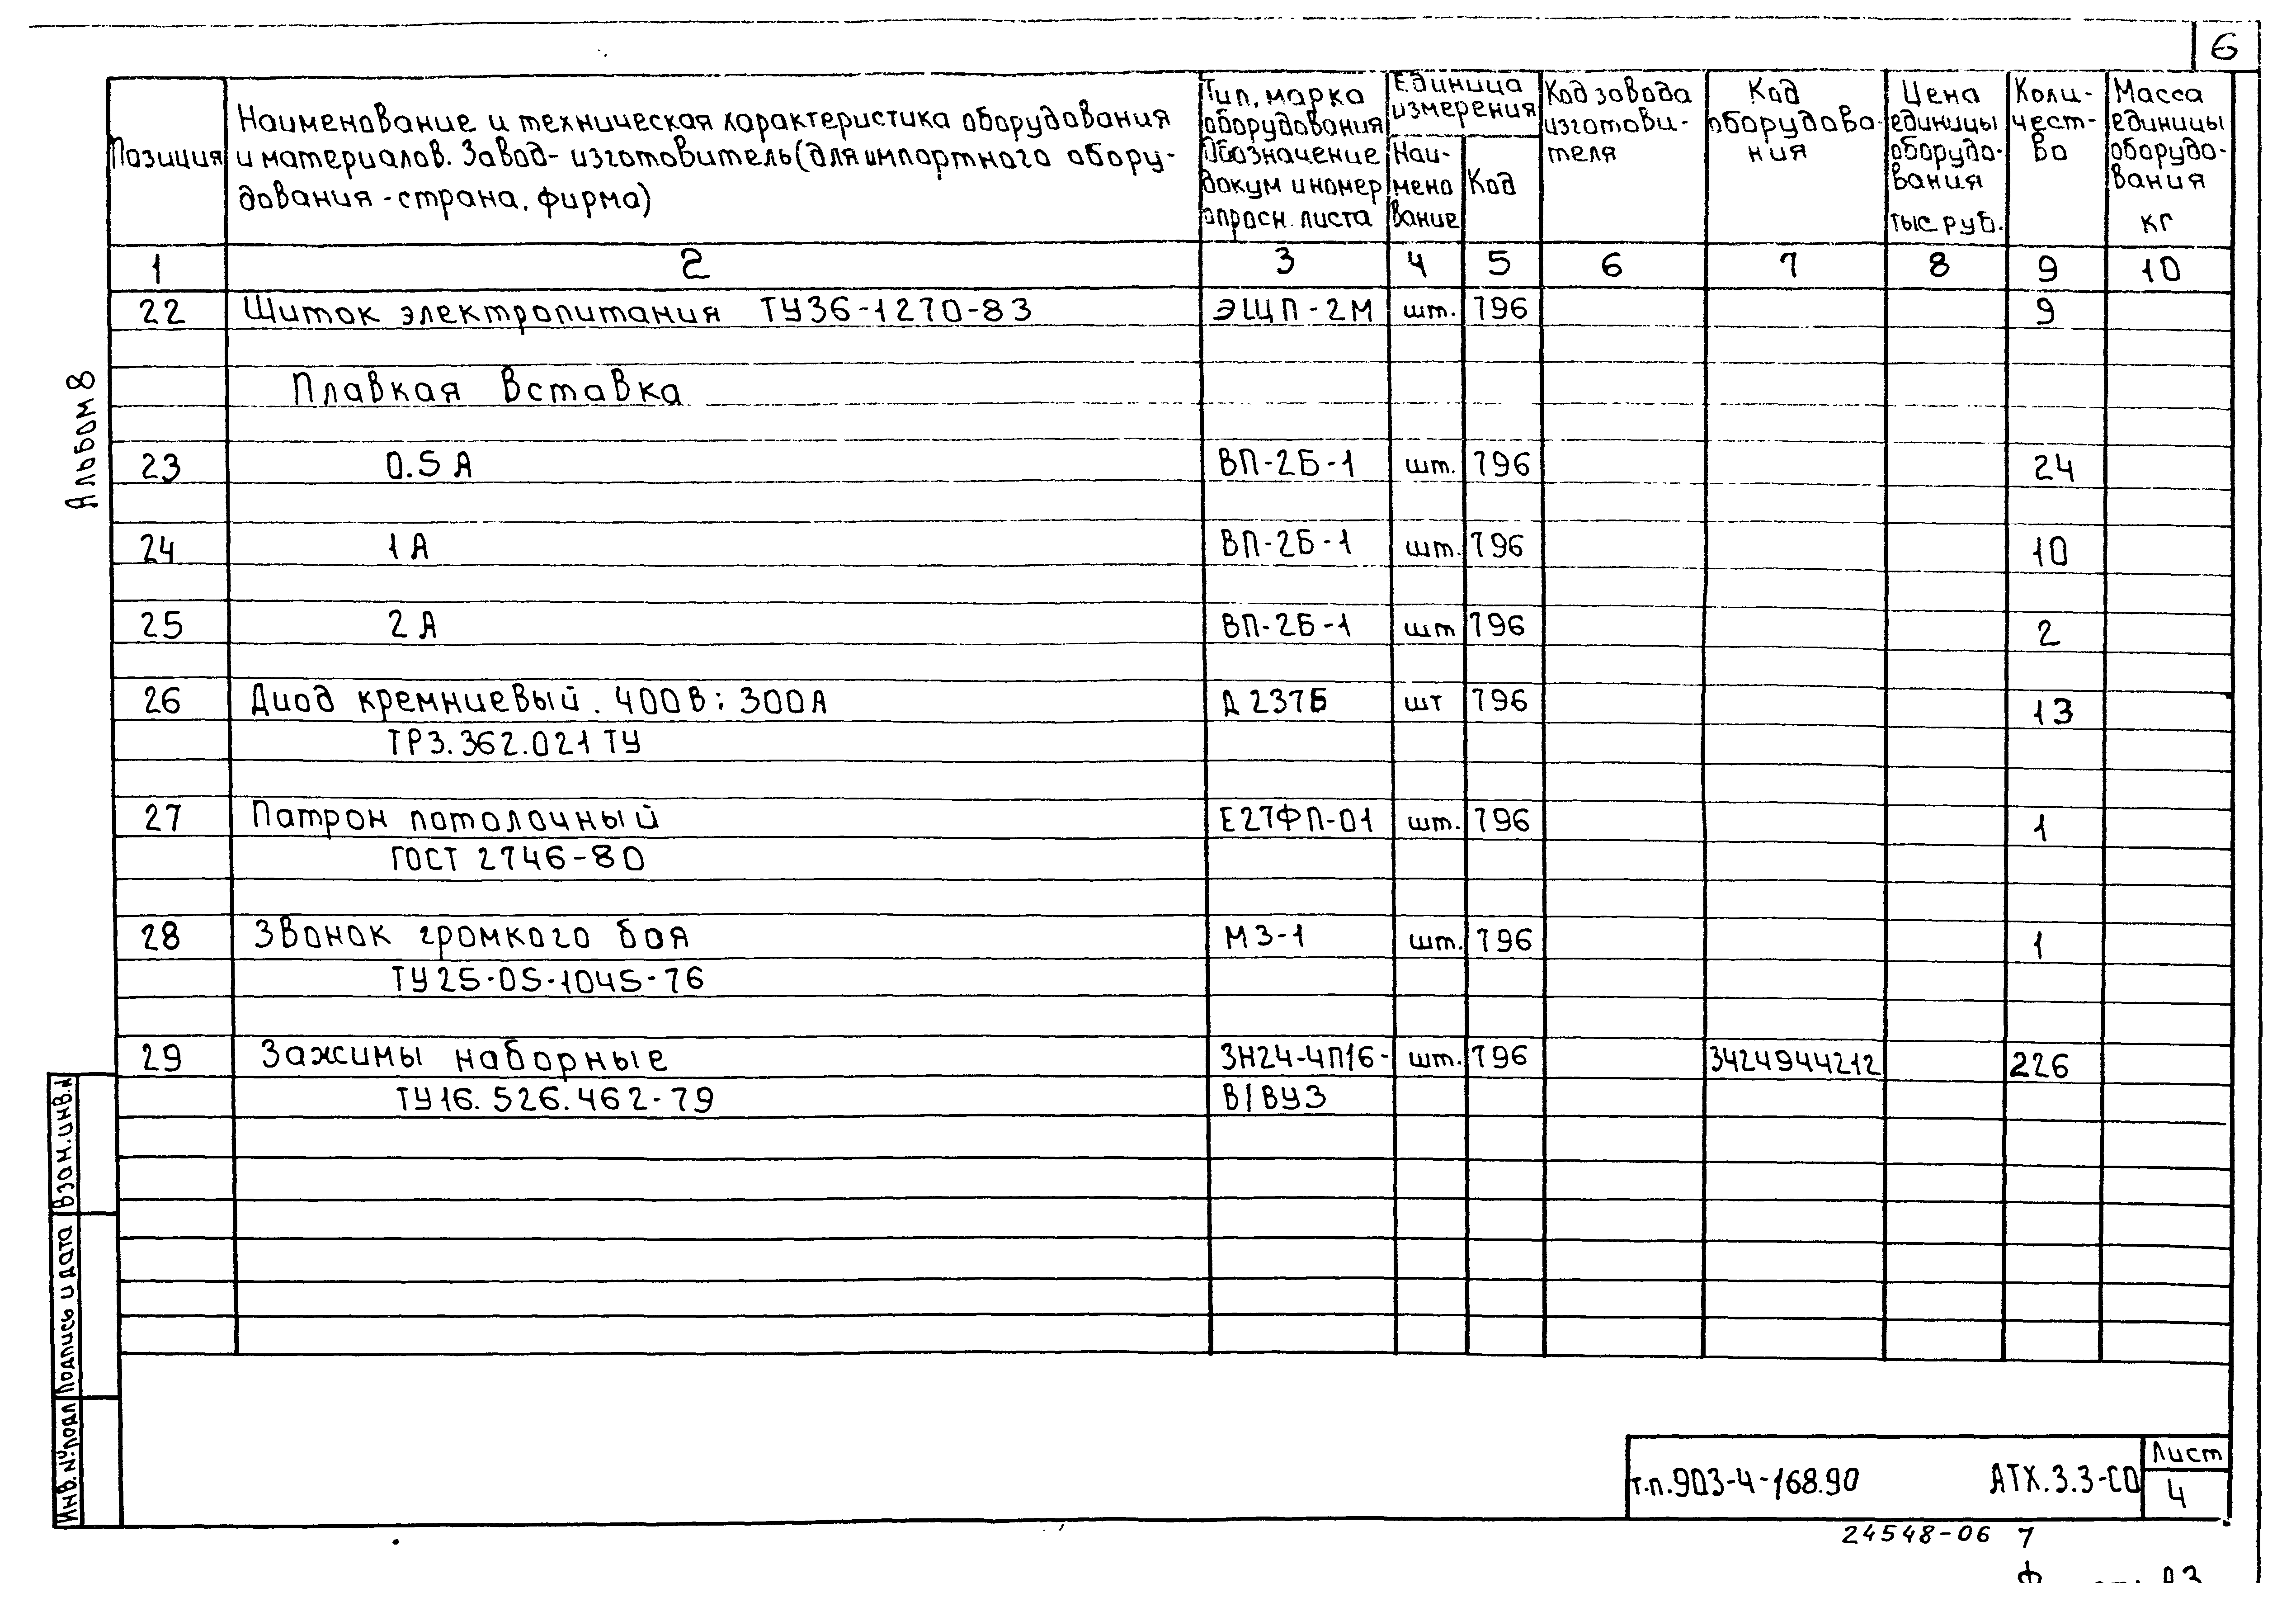 6
Позиция
Наименование и техническая характеристика оборудования
и материалов. Завод-изготовитель (для импортного обору-
дования - страна, фирма)
Тип, марка
оборудования
Обозначение
докум и номер
опросн. листа
Единица
измерения
Наи-
мено
вание
Код
Код завода
изготови-
теля
Код
оборудова-
ния
Цена
единицы
оборудо-
вания
тыс.руб.
Коли-
чест-
во
Масса
единицы
оборудо-
вания
кг
1 2 3 4 5 6 7 8 9 10
22 Щиток электропитания ТУ36-1270-83 ЭЩП-2М шт. 796 9
Плавкая вставка
23 0.5А ВП-2Б-1 шт. 796 24
24 1А ВП-2Б-1 шт. 796 10
25 2А ВП-2Б-1 шт 796 2
26 Диод кремниевый. 400В; 300А Д237Б шт 796 13
ТР3.362.021 ТУ
27 Патрон потолочный Е27ФП-01 шт. 796 1
ГОСТ 2746-80
28 Звонок громкого боя МЗ-1 шт. 796 1
ТУ25-05-1045-76
29 Зажимы наборные ЗН24-4П16- шт. 796 3424944212 226
ТУ16.526.462-79 В/ВУ3
Альбом 8
Взам.инв.N
Подпись и дата
Инв.№подл
т.п.903-4-168.90 АТХ.3.3-СО
Лист
4
24548-06 7